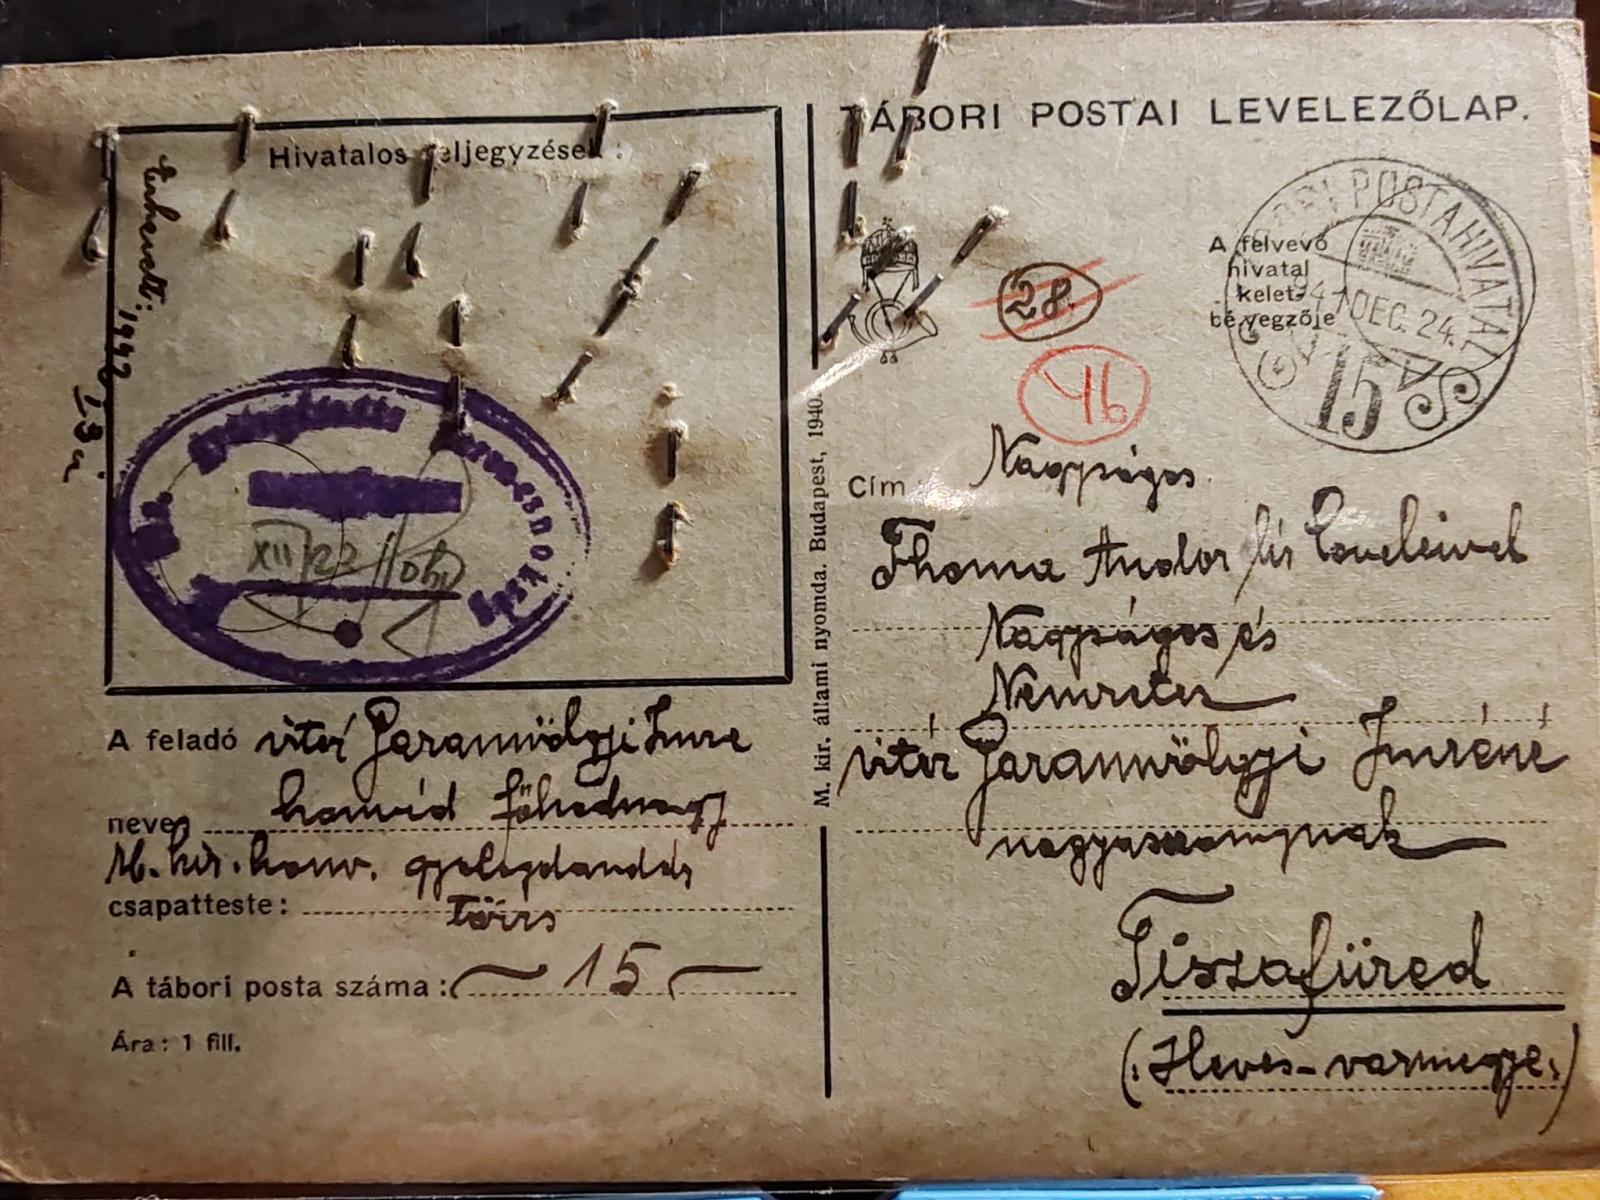 Hivatalos feljegyzések :
XII/23
A feladó vitéz Garamvölgyi Imre
neve: honvéd főhadnagy
M. kir. honv. gyalogdandár
csapatteste: Törzs
A tábori posta száma: 15
Ára: 1 fill.
M. kir. állami nyomda. Budapest, 1940.
TÁBORI POSTAI LEVELEZŐLAP.
A felvevő
hivatal
kelet-
bélyegzője
TÁBORI POSTAHIVATAL
DEC. 24.
15
28.
46
Cím: Nagyságos
Thoma Andor úr leveleivel
Nagyságos és
Nemzetes
vitéz Garamvölgyi Imréné
nagyasszonynak
Tiszafüred
(:Heves-vármegye:)